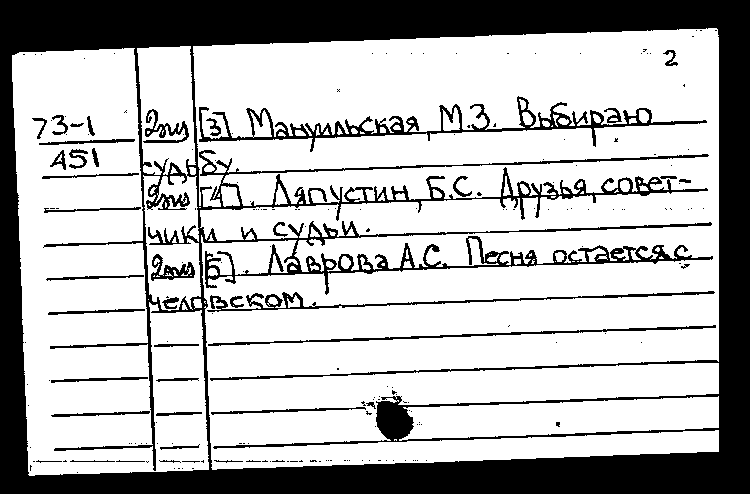 2
73-1 2экз [3] Мануильская, М.З. Выбираю
451 судьбу.
2экз [4]. Ляпустин, Б.С. Друзья, совет-
чики и судьи.
2экз [5]. Лаврова А.С. Песня остается с
человеком.